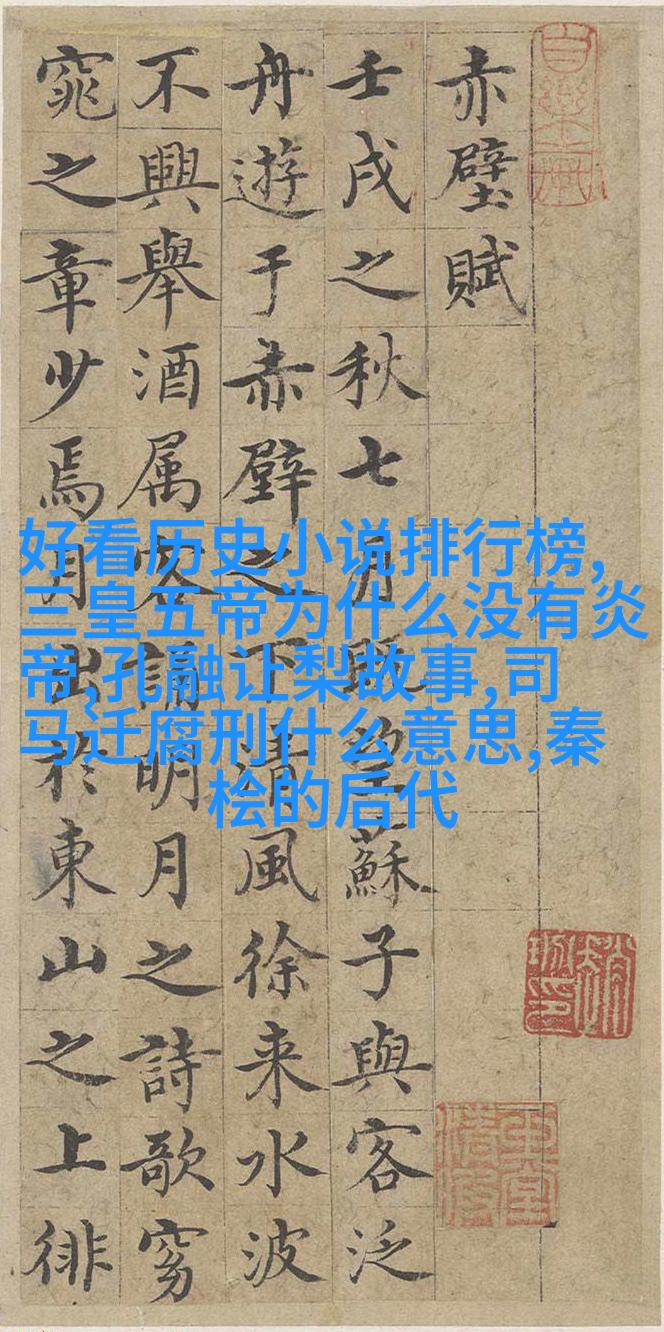 赤壁賦
壬戌之秋七月既望蘇子與客泛
舟遊于赤壁之下清風徐来水波
不興舉酒属客誦明月之詩歌窈
窕之章少焉月出於東山之上徘
好看历史小说排行榜,
三皇五帝为什么没有炎
帝,孔融让梨故事,司
马迁腐刑什么意思,秦
桧的后代